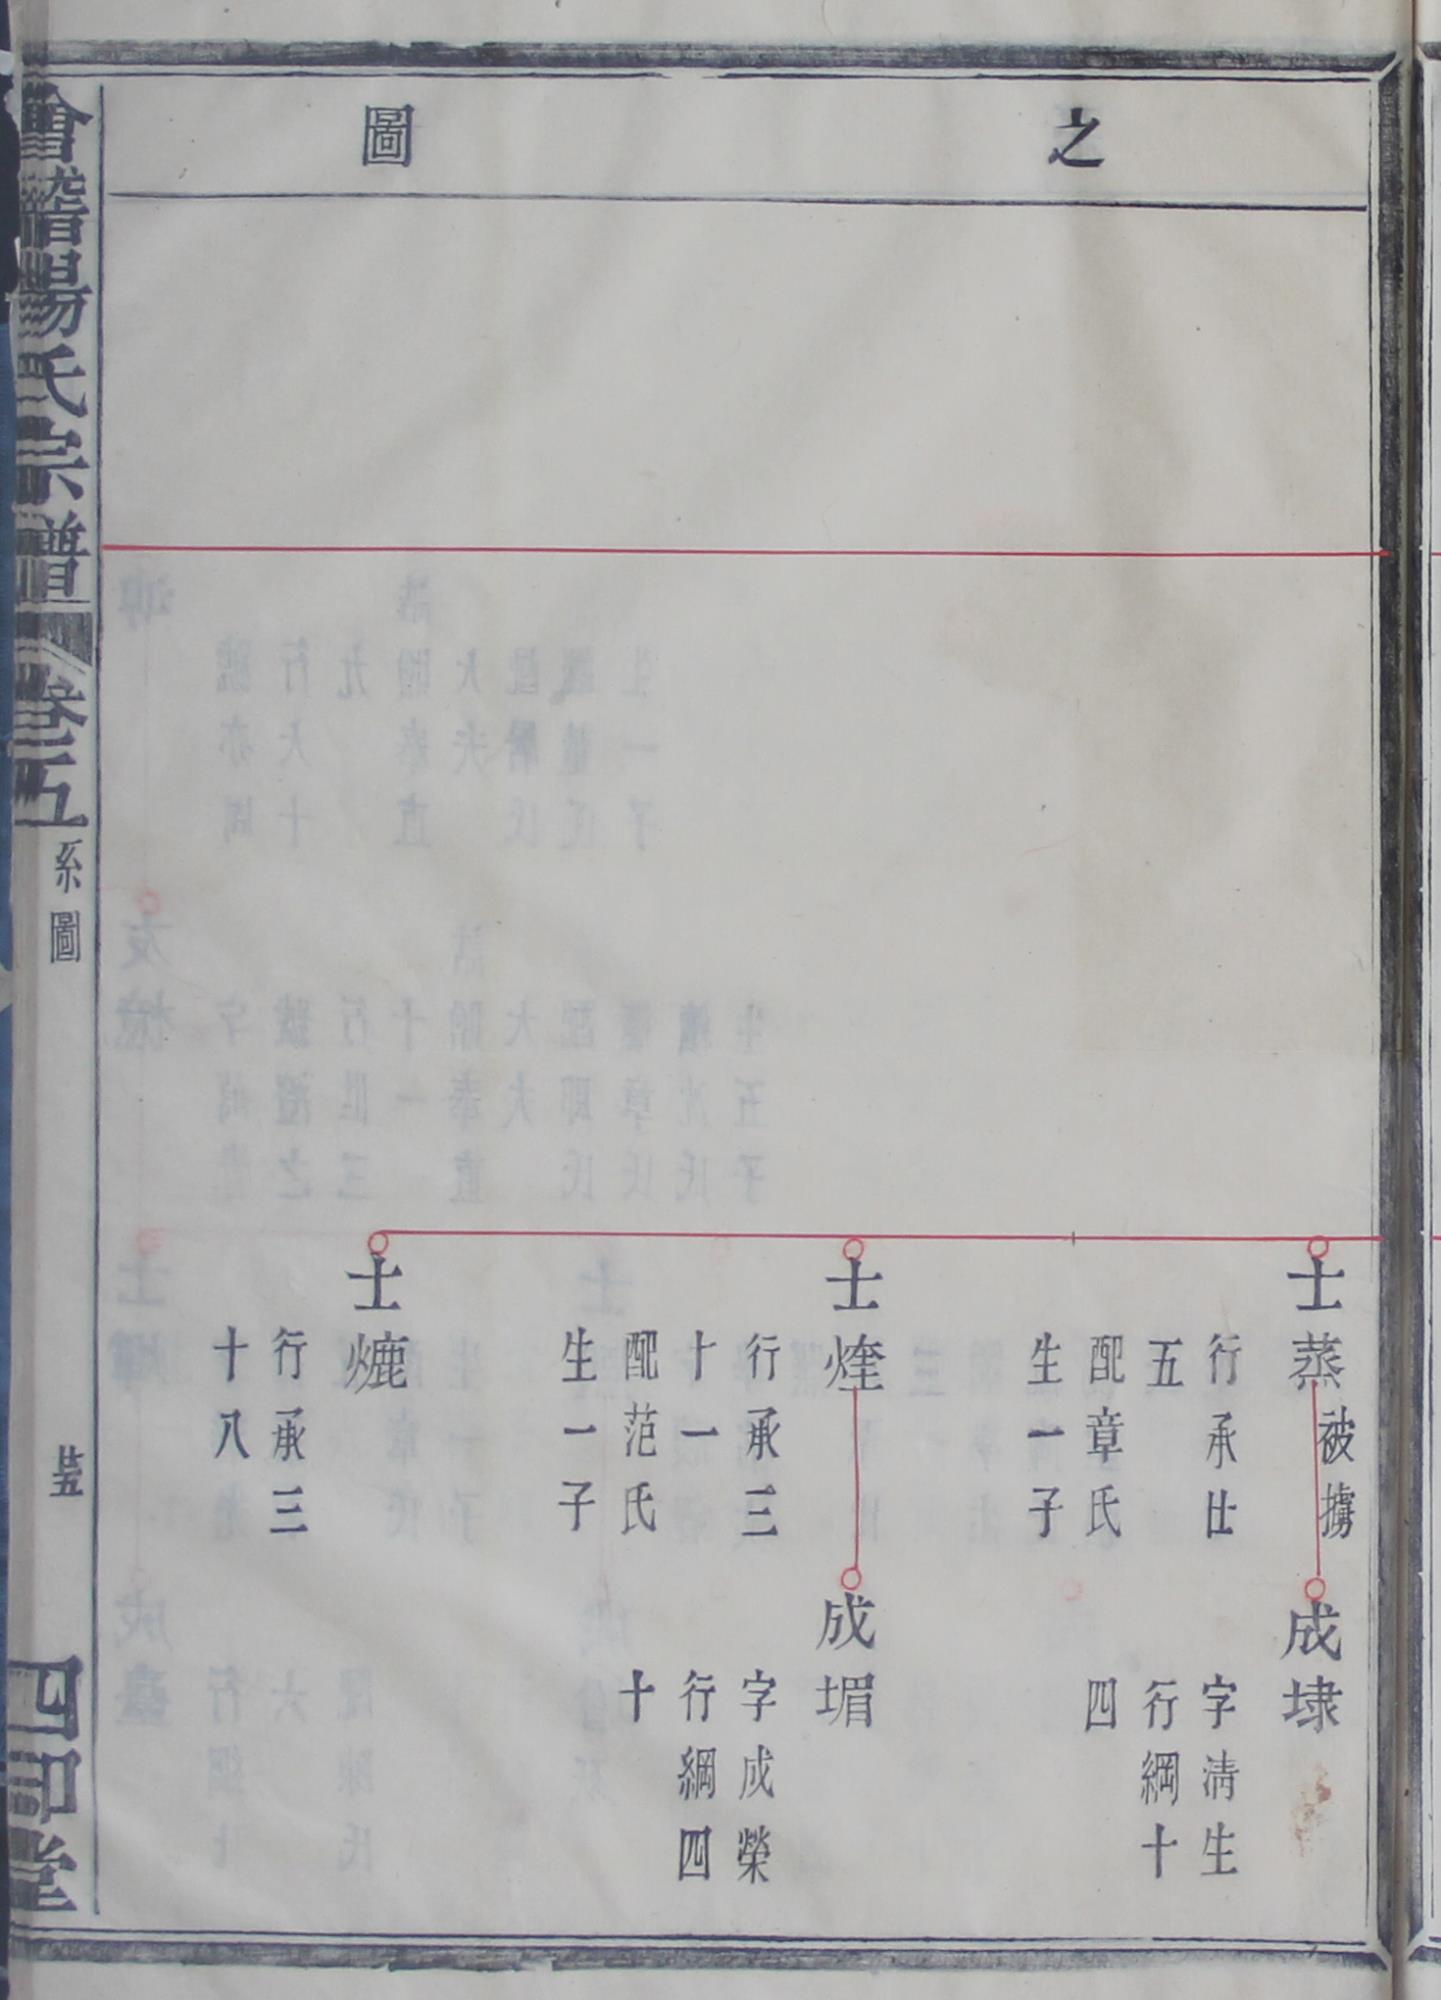 之圖
士蒸
被擄
行承仕
五
配章氏
生一子
成埭
字清生
行綱十
四
士煃
行承三
十一
配范氏
生一子
成堳
字成榮
行綱四
十
士熝
行承三
十八
會稽楊氏宗譜
卷五
系圖
四知堂